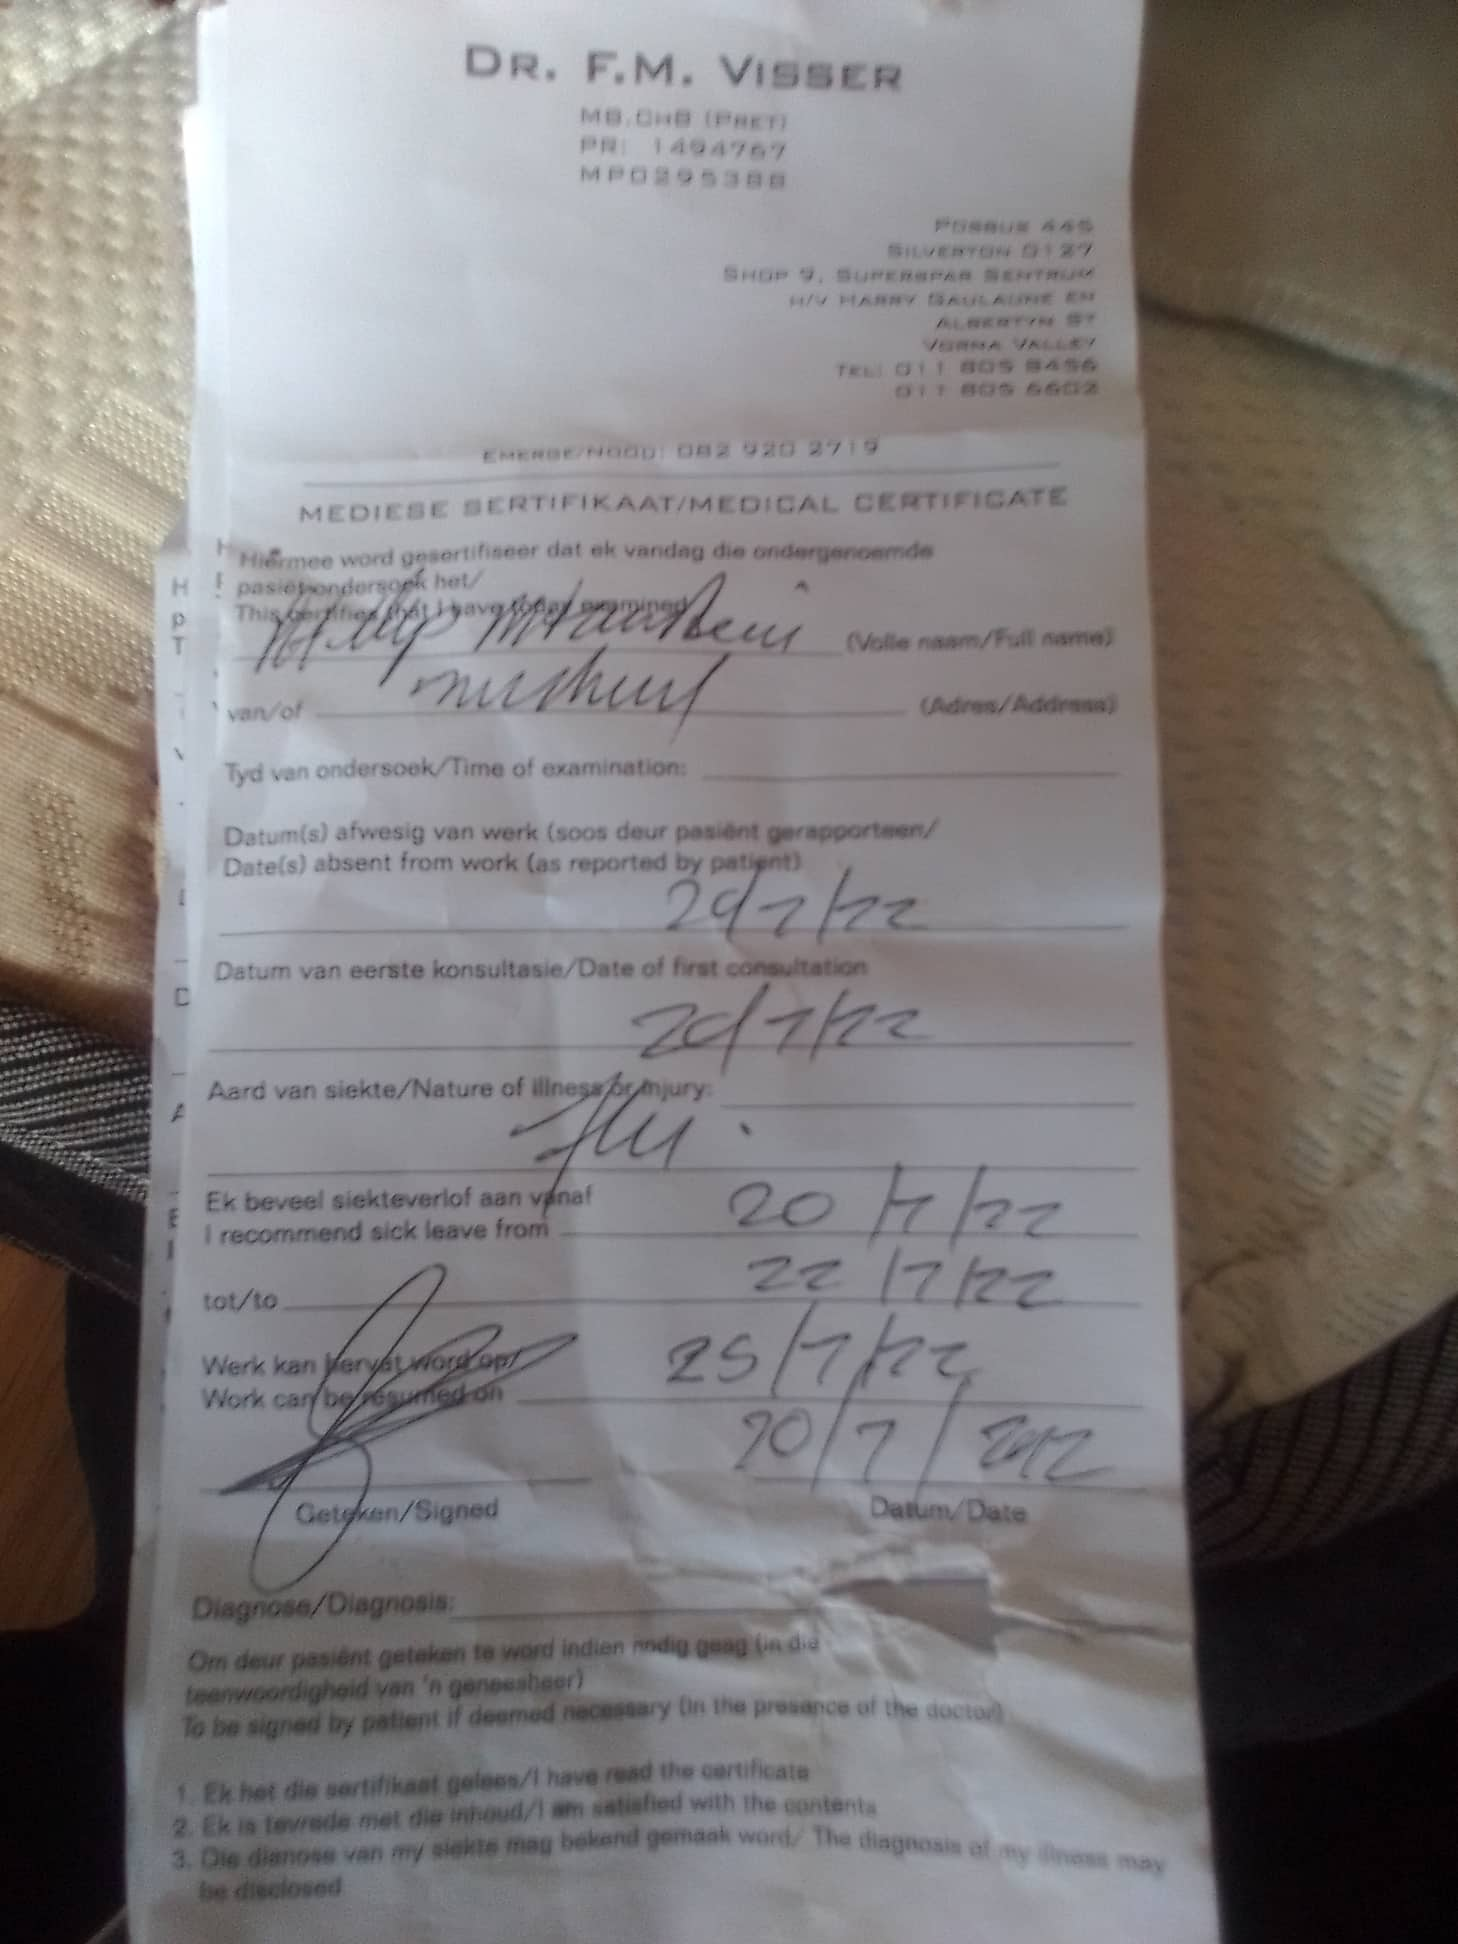 DR. F.M. VISSER
MB.CHB (PRET)
PR: 1494767
MP0295388
POSBUS 445
SILVERTON 0127
SHOP 9, SUPERSPAR SENTRUM
H/V HARRY GALAUNE EN
ALBERTYN ST
VORNA VALLEY
TEL: 011 805 8456
011 805 6602
EMERGE/NOOD: 082 920 2719
MEDIESE SERTIFIKAAT/MEDICAL CERTIFICATE
Hiermee word gesertifiseer dat ek vandag die ondergenoemde
pasiënt ondersoek het/
This certifies that I have today examined
(Volle naam/Full name)
van/of (Adres/Address)
Tyd van ondersoek/Time of examination:
Datum(s) afwesig van werk (soos deur pasiënt gerapporteen/
Date(s) absent from work (as reported by patient)
20/7/22
Datum van eerste konsultasie/Date of first consultation
20/7/22
Aard van siekte/Nature of illness or injury:
flu.
Ek beveel siekteverlof aan vanaf
I recommend sick leave from 20/7/22
tot/to 22/7/22
Werk kan hervat word op/ 25/7/22
Work can be resumed on
20/7/2022
Geteken/Signed Datum/Date
Diagnose/Diagnosis:
Om deur pasiënt geteken te word indien nodig geag (in die
teenwoordigheid van 'n geneesheer)
To be signed by patient if deemed necessary (in the presence of the doctor)
1. Ek het die sertifikaat gelees/I have read the certificate
2. Ek is tevrede met die inhoud/I am satisfied with the contents
3. Die dianose van my siekte mag bekend gemaak word/ The diagnosis of my illness may
be disclosed